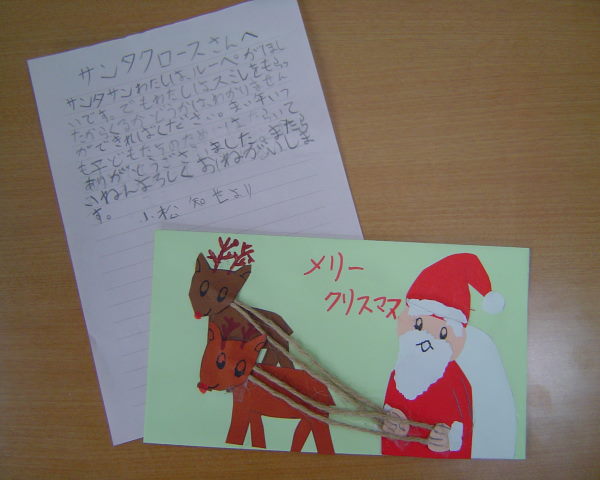 サンタクロースさんへ
サンタサンわたしは、ルーペがほし
いです。でもわたしは、スミレをもらっ
わかりません
できればください。まい年いつ
もこどもたちのために
ありがとうございました。また
らいねんよろしくおねがいしま
す。 小松 知世より
メリー
クリスマス